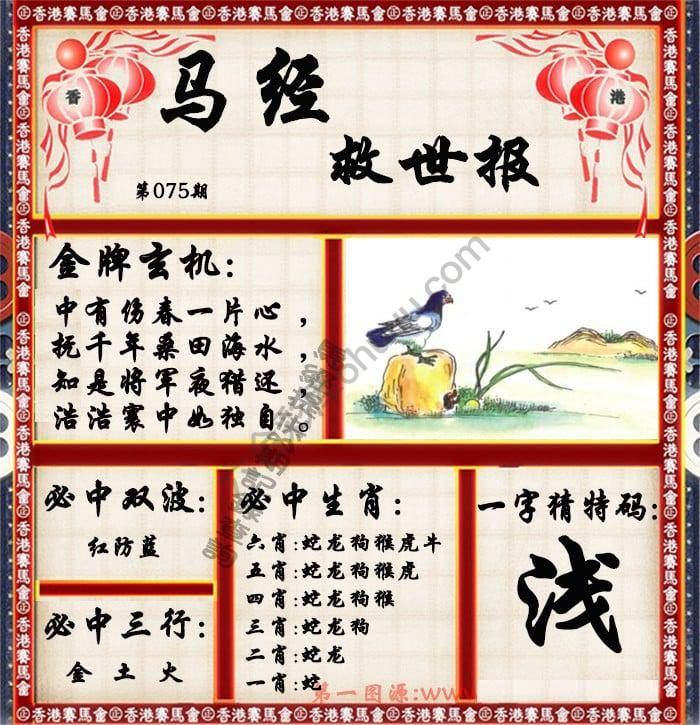 香港賽馬會
香 港
马经
救世报
第075期
金牌玄机:
中有伤春一片心,
抚千年桑田海水,
知是将军夜猎还,
浩浩寰中如独自。
必中双波:
红防蓝
必中三行:
金土火
必中生肖:
六肖:蛇龙狗猴虎牛
五肖:蛇龙狗猴虎
四肖:蛇龙狗猴
三肖:蛇龙狗
二肖:蛇龙
一肖:蛇
一字猜特码:
浅
第一图源:www